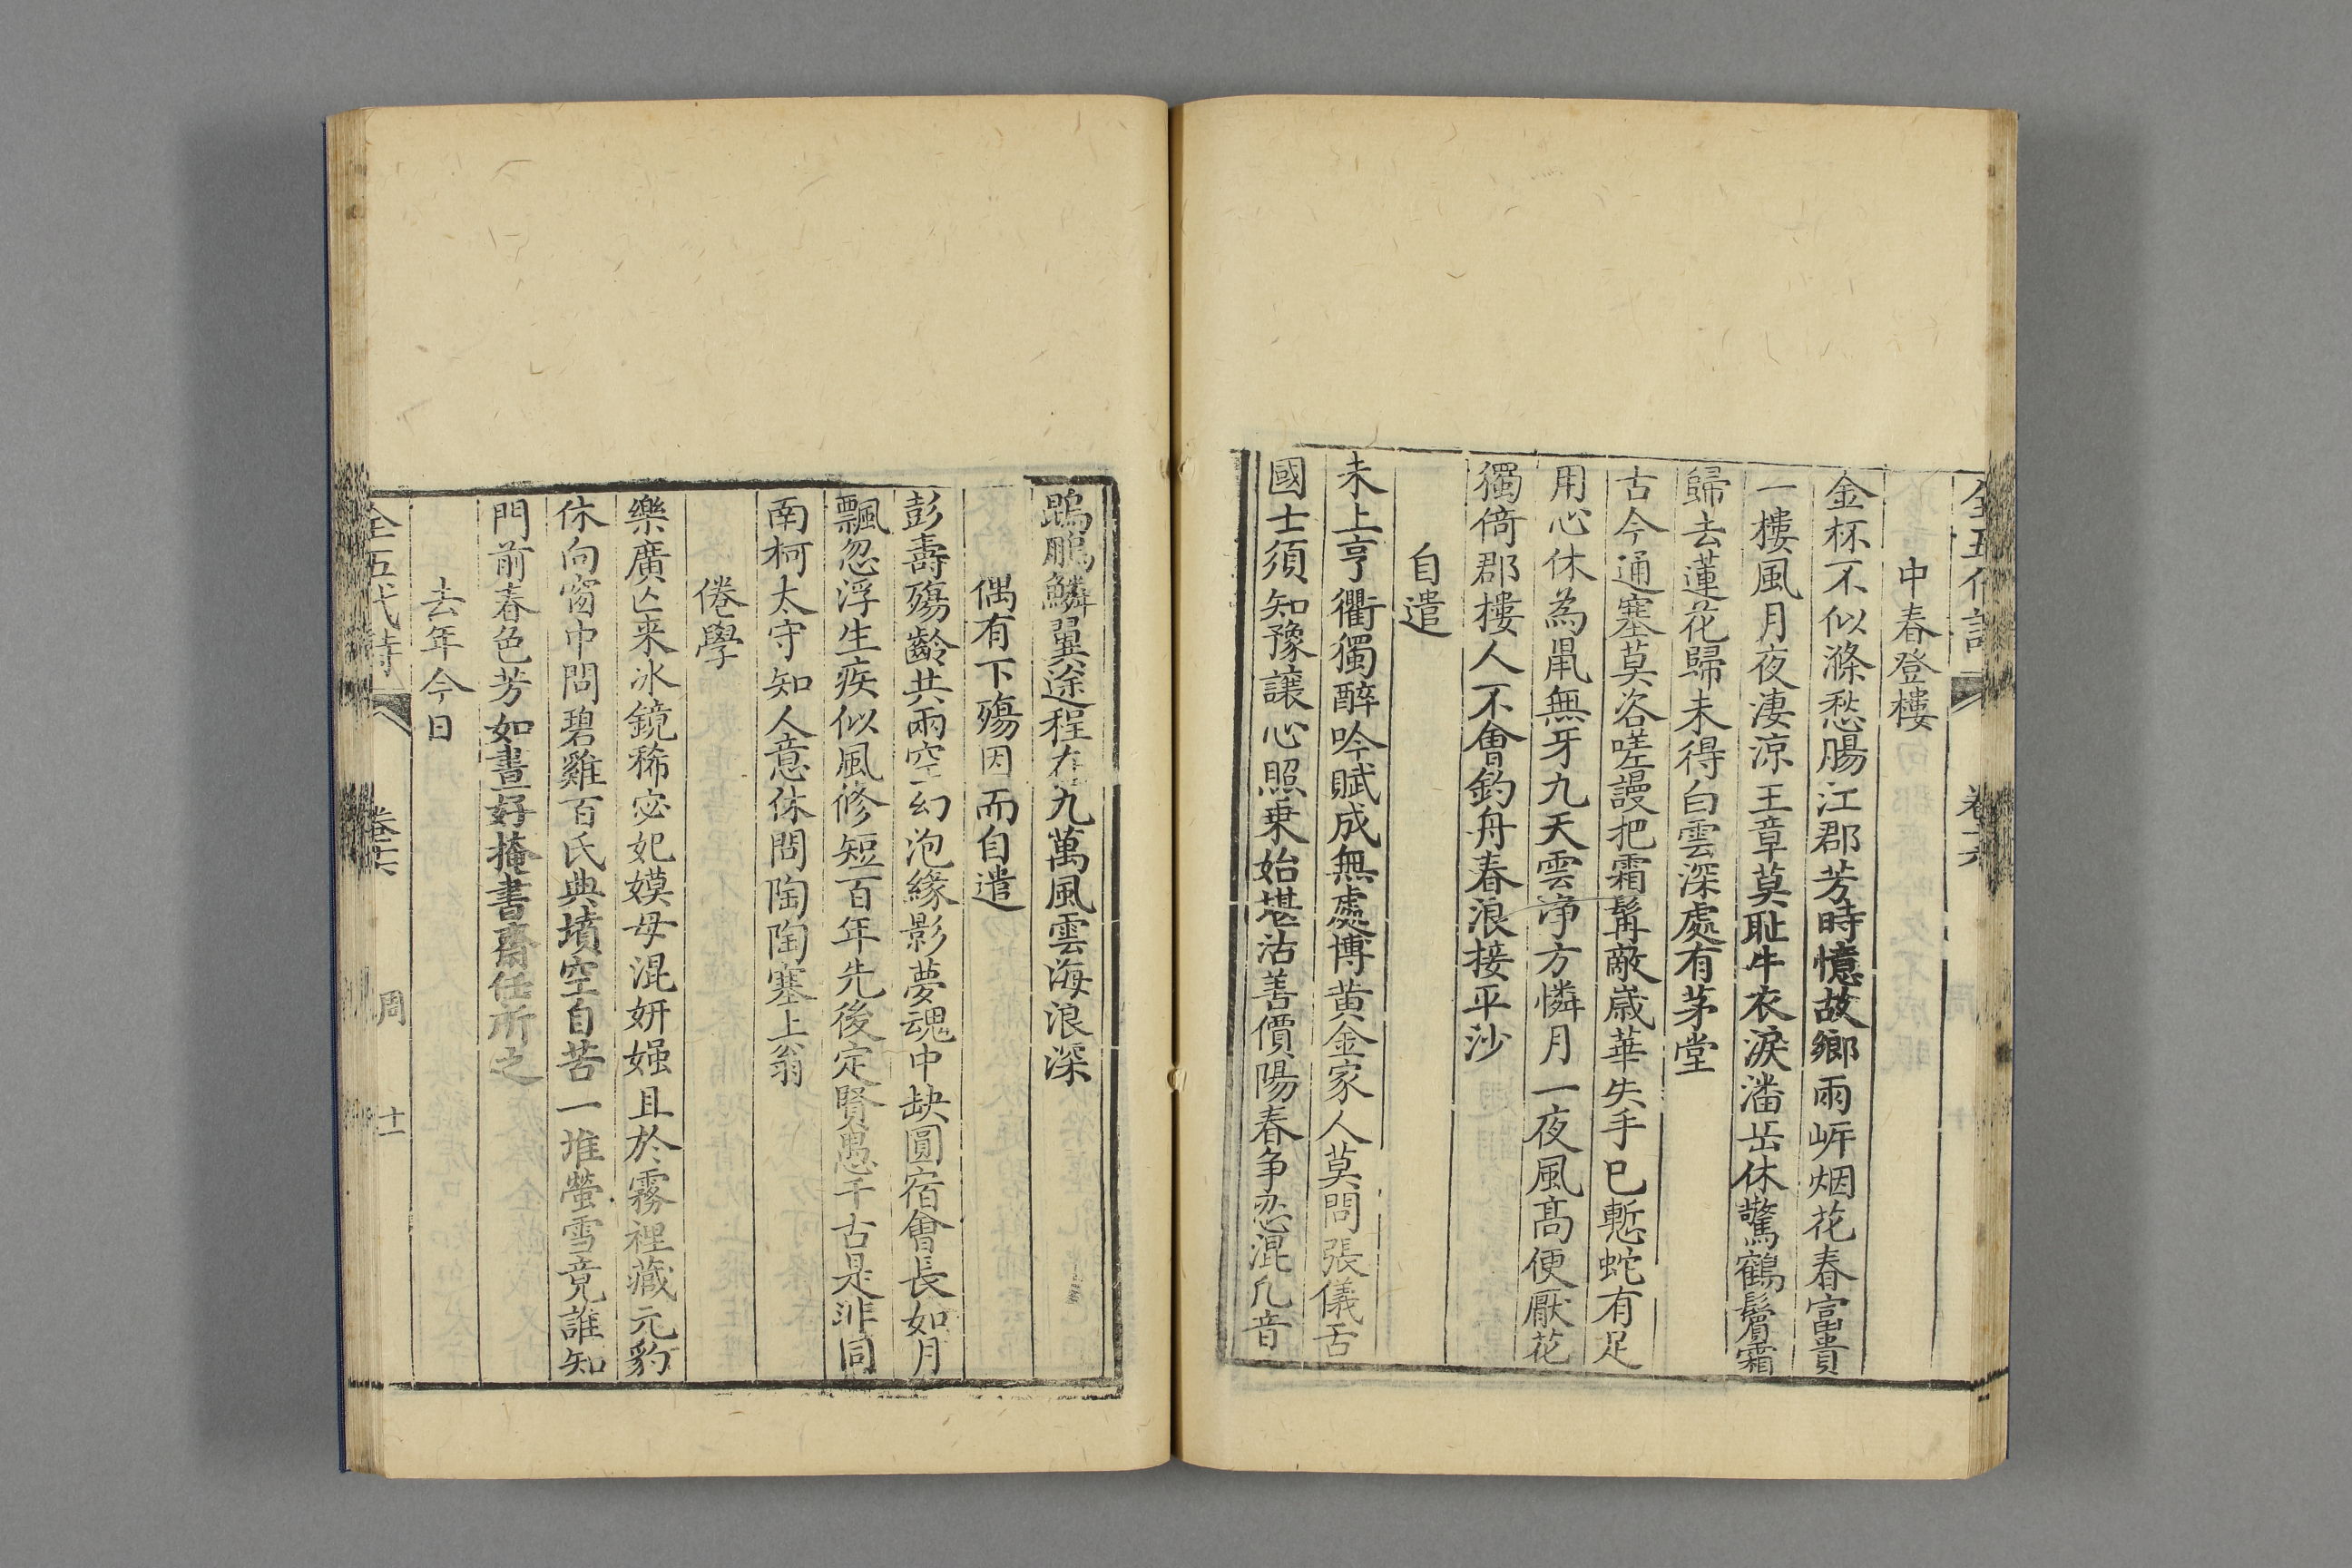 全五代詩 卷六
中春登樓
金杯不似滌愁腸江郡芳時憶故鄉雨岍烟花春富貴
一樓風月夜淒涼王章莫耻牛衣淚潘岳休驚鶴鬢霜
歸去蓮花歸未得白雲深處有茅堂
古今通塞莫咨嗟謾把霜髯敵歲華失手已慙蛇有足
用心休為鼠無牙九天雲淨方憐月一夜風髙便厭花
獨倚郡樓人不會釣舟春浪接平沙
自遣
未上亨衢獨醉吟賦成無處博黃金家人莫問張儀舌
國士須知豫讓心照乗始堪沽善價陽春争忍混凢音
鵾鵬鱗翼途程在九萬風雲海浪深
偶有下殤因而自遣
彭壽殤齡共兩空幻泡緣影夢魂中缺圓宿會長如月
飄忽浮生疾似風修短百年先後定賢愚千古是非同
南柯太守知人意休問陶陶塞上翁
倦學
樂廣亾来冰鏡稀宓妃嫫母混妍媸且於霧裡藏元豹
休向窗中問碧雞百氏典墳空自苦一堆螢雪竟誰知
門前春色芳如畫好掩書齋任所之
去年今日
全五代詩 卷六 周 十一